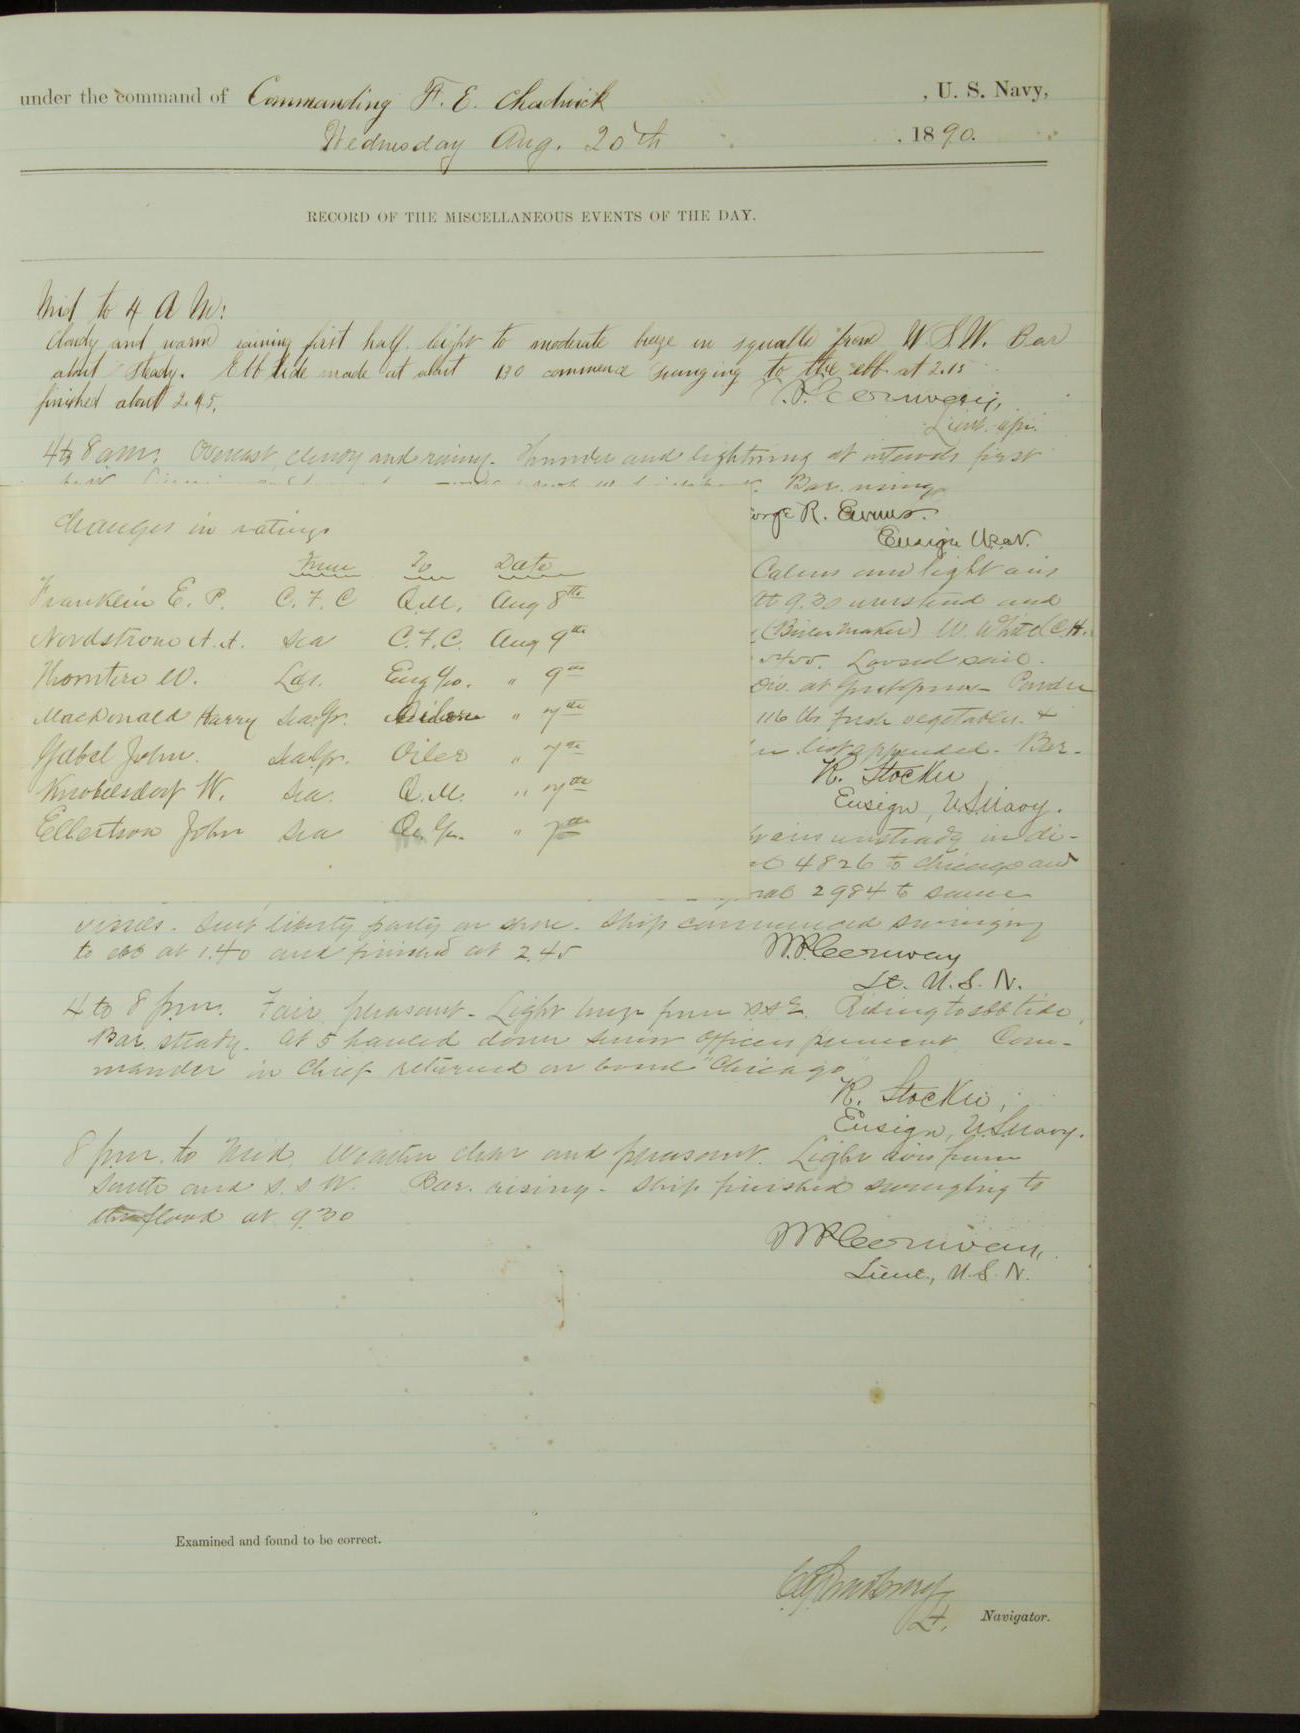 under the command of Commanding F. E. Chadwick , U. S. Navy,
Wednesday Aug. 20th , 1890.
RECORD OF THE MISCELLANEOUS EVENTS OF THE DAY.
Mid to 4 A M:
Cloudy and warm raining first half. light to moderate breeze in squalls from W S W. Bar
about steady. Ebb tide made at about 130 commence swinging to the ebb at 2.15
finished about 2.45.
Conway,
Lieut.
4 to 8 am: Overcast, cloudy and rainy. Thunder and lightning at intervals first
Bar. rising
Changes in ratings
R. Evans.
Ensign U.S.N.
From To Date
Calms and light airs
Franklin E. P. C. F. C Q.M. Aug 8th
At 9.30 and
Nordstrom A. A. Sea C. F. C. Aug 9th
(Boiler maker) W. White
W. Lds. " 9th
Loosed sail.
Div. at
MacDonald Harry Sea Gr. Oiler " 7th
116 lbs fresh vegetables. &
John. Sea Gr. Oiler " 7th
list appended. Bar-
Knobelsdorf W. Sea. Q.M. " 7th
R. Stocker
Ensign, U.S. Navy.
Ellertson John Sea Gr. " 7th
airs unsteady in di-
4826 to Chicago and
2984 to same
vessels. Sent liberty party on shore. Ship commenced swinging
to ebb at 1.40 and finished at 2.45
W.P. Conway
Lt. U. S. N.
4 to 8 pm. Fair, pleasant. Light breeze from SSE. Riding to ebb tide,
Bar. steady. At 5 hauled down senior officers pennant. Com-
mander in Chief returned on board "Chicago"
R. Stocker,
Ensign, U.S. Navy.
8 pm. to Mid. Weather clear and pleasant. Light airs from
South and S. S W. Bar. rising. Ship finished swinging to
flood at 9.30
W P Conway,
Lieut., U. S. N.
Examined and found to be correct.
Lt. Navigator.